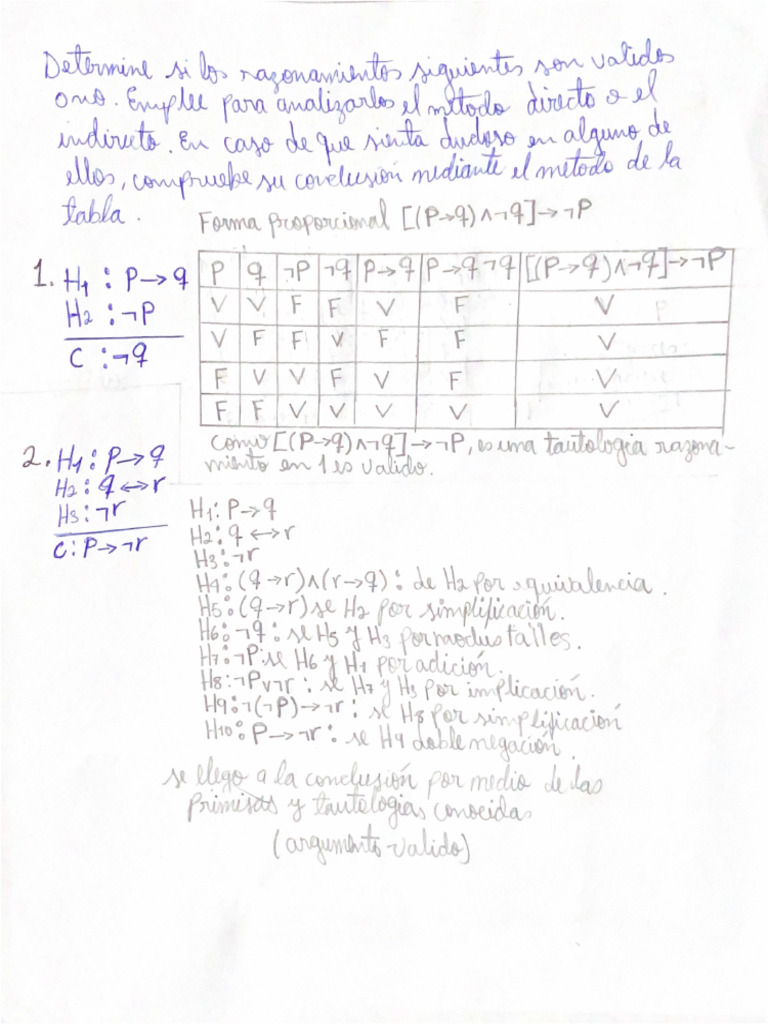 Determine si los razonamientos siguientes son validos
o no. Emplee para analizarlos el metodo directo o el
indirecto. En caso de que sienta dudoso en alguno de
ellos, compruebe su conclusión mediante el metodo de la
tabla.
Forma proporcional [(P→q)∧¬q]→¬P
1. H1 : P→q
H2 : ¬P
C : ¬q
P q ¬P ¬q P→q P→q ¬q [(P→q)∧¬q]→¬P
V V F F V F V
V F F V F F V
F V V F V F V
F F V V V V V
como [(P→q)∧¬q]→¬P, es una tautologia razona-
miento en 1 es valido.
2. H1 : P→q
H2 : q↔r
H3 : ¬r
C : P→¬r
H1: P→q
H2: q↔r
H3: ¬r
H4: (q→r)∧(r→q) : de H2 por equivalencia.
H5: (q→r) se H2 por simplificación.
H6: ¬q : se H5 y H3 por modus talles.
H7: ¬P: se H6 y H1 por adición.
H8: ¬P∨¬r : se H7 y H3 por implicación.
H9: ¬(¬P)→¬r : se H8 por simplificación
H10: P→¬r : se H9 doble negación.
se llego a la conclusión por medio de las
primisas y tautologias conocidas
(argumento valido)